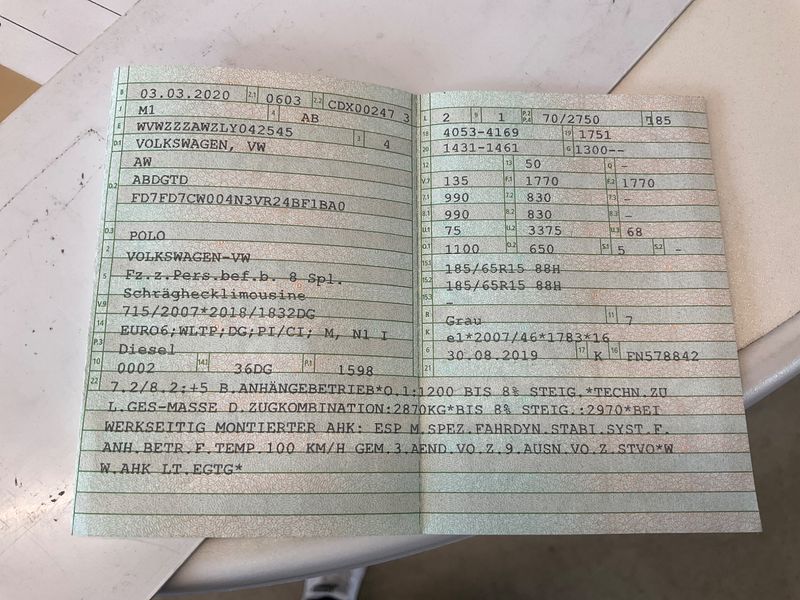 B 03.03.2020 2.1 0603 2.2 CDX00247 3
J M1 4 AB
E WVWZZZAWZLY042545 3 4
D.1 VOLKSWAGEN, VW
AW
D.2 ABDGTD
FD7FD7CW004N3VR24BF1BA0
D.3 POLO
2 VOLKSWAGEN-VW
5 Fz.z.Pers.bef.b. 8 Spl.
Schräghecklimousine
V.9 715/2007*2018/1832DG
14 EURO6;WLTP;DG;PI/CI; M, N1 I
P.3 Diesel
10 0002 14.1 36DG P.1 1598
L 2 9 1 P.2 P.4 70/2750 T 185
18 4053-4169 19 1751
20 1431-1461 G 1300--
12 - 13 50 Q -
V.7 135 F.1 1770 F.2 1770
7.1 990 7.2 830 7.3 -
8.1 990 8.2 830 8.3 -
U.1 75 U.2 3375 U.3 68
O.1 1100 O.2 650 S.1 5 S.2 -
15.1 185/65R15 88H
15.2 185/65R15 88H
15.3 -
R Grau 11 7
K e1*2007/46*1783*16
6 30.08.2019 17 K 16 FN578842
21
22 7.2/8.2:+5 B.ANHÄNGEBETRIEB*O.1:1200 BIS 8% STEIG.*TECHN.ZU
L.GES-MASSE D.ZUGKOMBINATION:2870KG*BIS 8% STEIG.:2970*BEI
WERKSEITIG MONTIERTER AHK: ESP M.SPEZ.FAHRDYN.STABI.SYST.F.
ANH.BETR.F.TEMP.100 KM/H GEM.3.AEND.VO.Z.9.AUSN.VO.Z.STVO*W
W.AHK LT.EGTG*